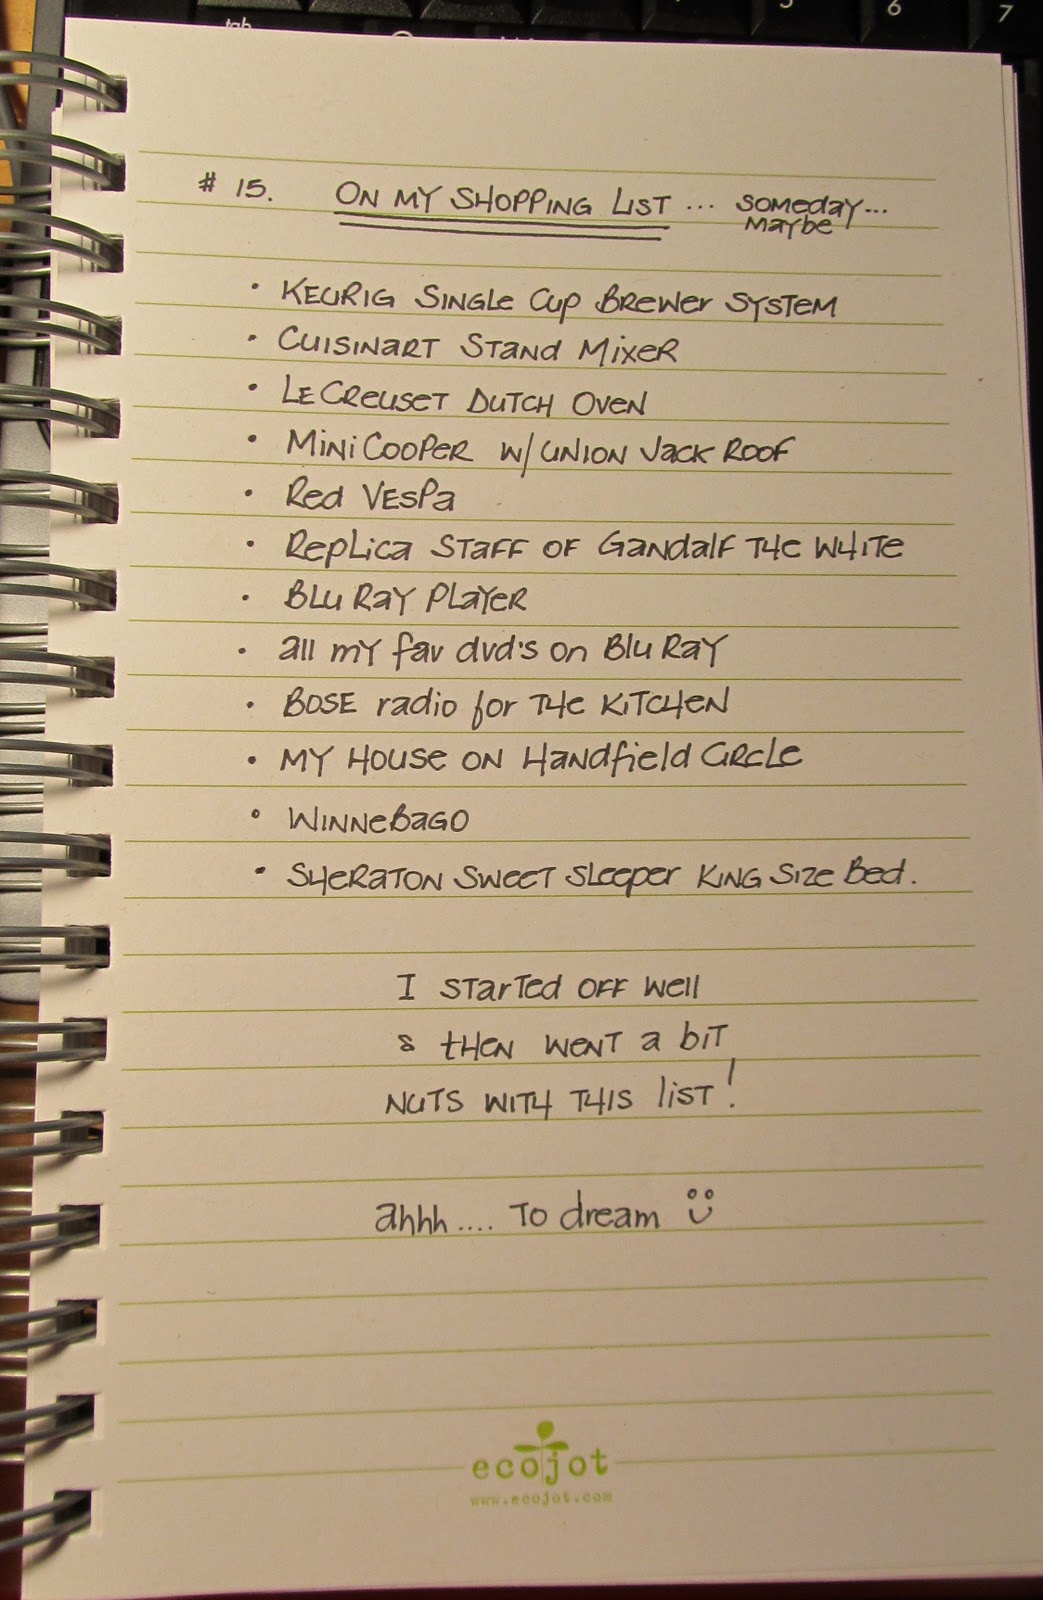 tab
5
6
7
# 15. ON MY SHOPPING LIST ... SOMEDAY...
MAYBE
• KEURIG SINGLE CUP BREWER SYSTEM
• CUISINART STAND MIXER
• LE CREUSET DUTCH OVEN
• MINI COOPER W/ UNION JACK ROOF
• Red VESPA
• REPLICA STAFF OF GANDALF THE WHITE
• BLU RAY PLAYER
• all my fav dvd's on BLU RAY
• BOSE radio for THE KITCHEN
• MY HOUSE ON Handfield CIRCLE
• WINNEBAGO
• SHERATON SWEET SLEEPER KING SIZE Bed.
I STARTED OFF WELL
& THEN WENT a bIT
NUTS WITH THIS LIST!
ahhh.... To dream
ecojot
www.ecojot.com